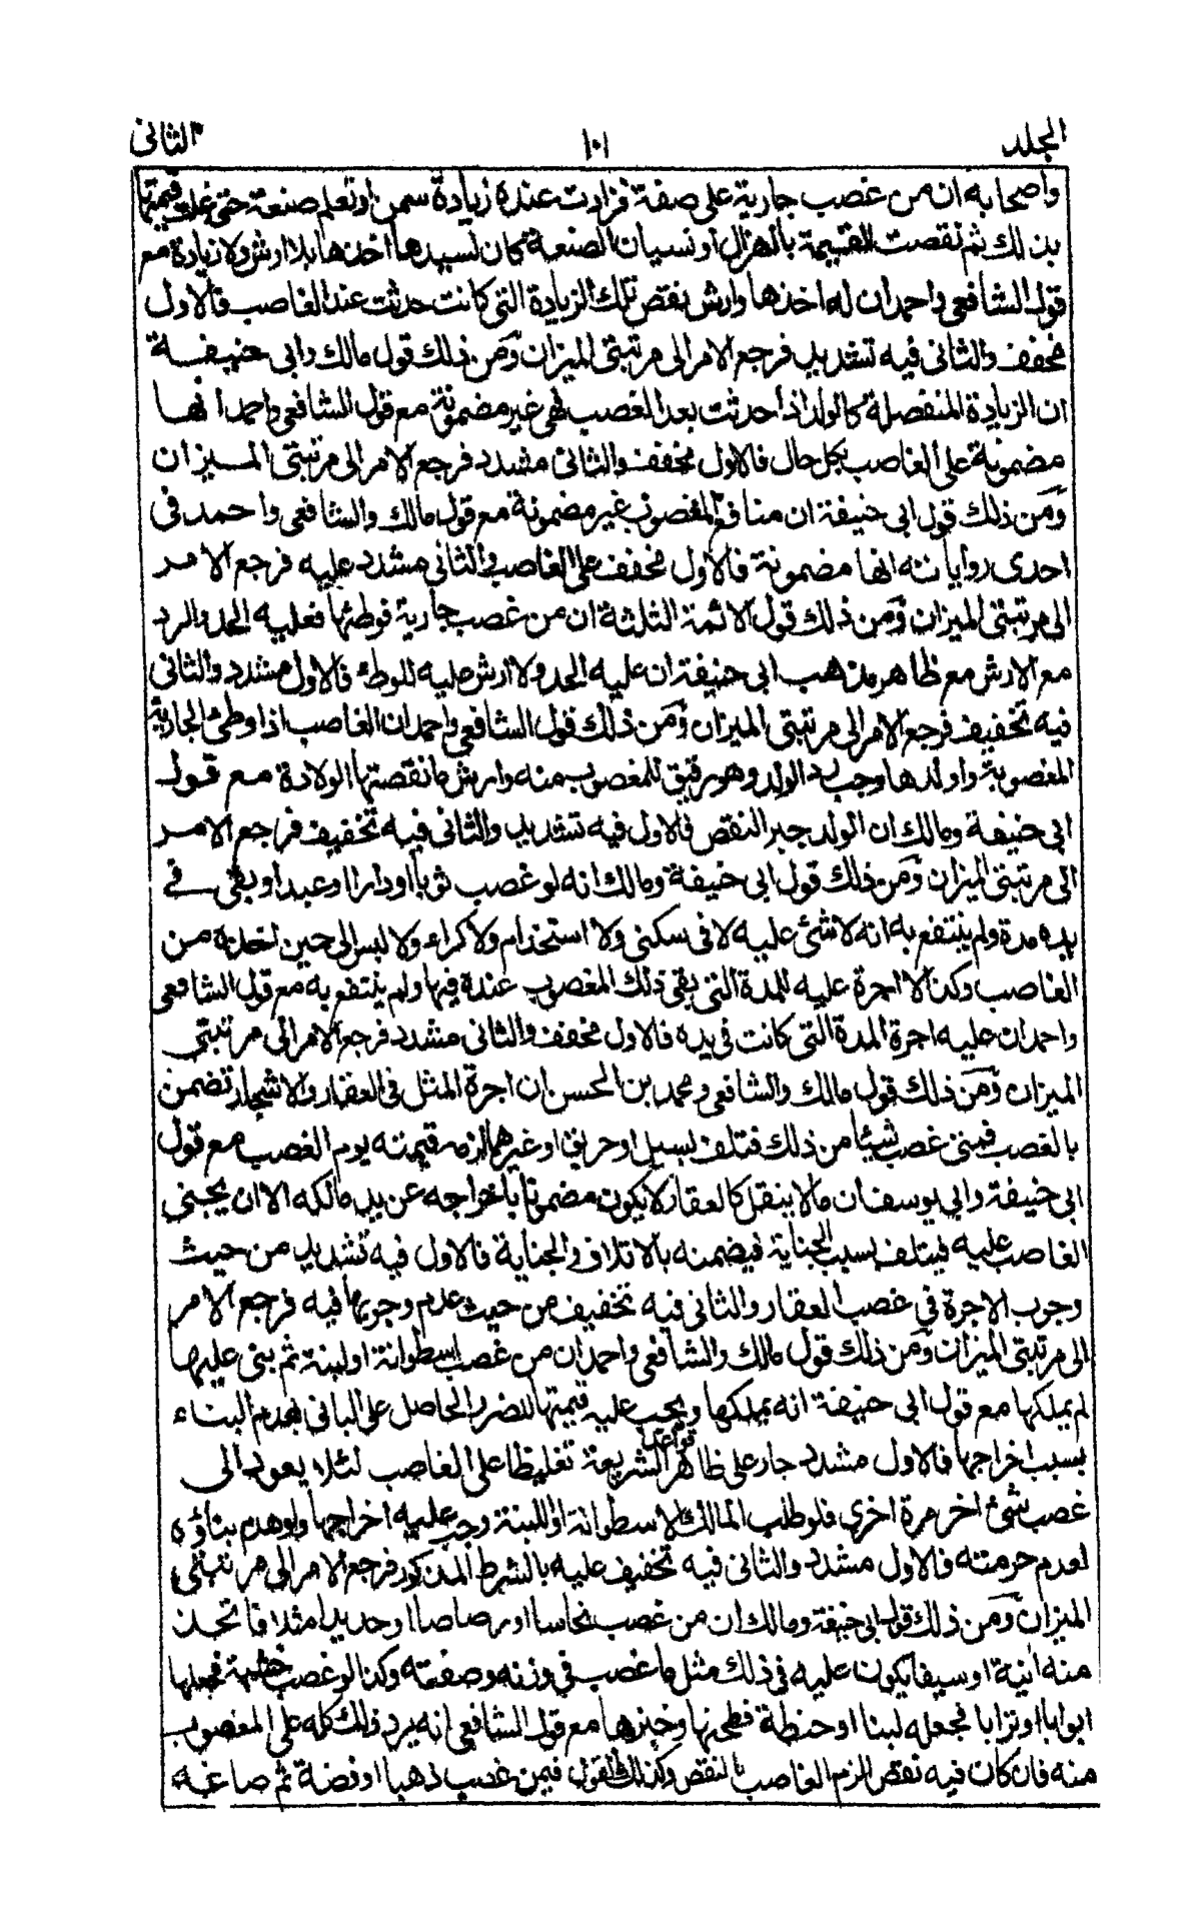 المجلد ١٠١ الثاني
واصحابه ان من غصب جارية على صفة فزادت عنده زيادة سمن او تعلم صنعة حتى غلت قيمتها
بذلك ثم نقصت القيمة بالهزال او نسيان الصنعة كان لسيدها اخذها بلا ارش ولا زيادة مع
قول الشافعي واحمد ان له اخذها وارش نقص تلك الزيادة التي كانت حدثت عند الغاصب فالاول
مخفف والثاني فيه تشديد فرجع الامر الى مرتبتي الميزان ومن ذلك قول مالك وابي حنيفة
ان الزيادة المنفصلة كالولد اذا حدثت بعد الغصب فهي غير مضمونة مع قول الشافعي واحمد انها
مضمونة على الغاصب بكل حال فالاول مخفف والثاني مشدد فرجع الامر الى مرتبتي الميزان
ومن ذلك قول ابي حنيفة ان منافع المغصوب غير مضمونة مع قول مالك والشافعي واحمد في
احدى رواياته انها مضمونة فالاول مخفف على الغاصب والثاني مشدد عليه فرجع الامر
الى مرتبتي الميزان ومن ذلك قول الائمة الثلثة ان من غصب جارية فوطئها فعليه الحد والرد
مع الارش مع ظاهر مذهب ابي حنيفة ان عليه الحد ولا ارش عليه للوطء فالاول مشدد والثاني
فيه تخفيف فرجع الامر الى مرتبتي الميزان ومن ذلك قول الشافعي واحمد ان الغاصب اذا وطئ الجارية
المغصوبة واولدها وجب رد الولد وهو رقيق للمغصوب منه وارش ما نقصتها الولادة مع قول
ابي حنيفة ومالك ان الولد جبر النقص فالاول فيه تشديد والثاني فيه تخفيف فراجع الامر
الى مرتبتي الميزان ومن ذلك قول ابي حنيفة ومالك انه لو غصب ثوبا او دارا او عبدا وبقي في
يده مدة ولم ينتفع به انه لا شئ عليه لا في سكنى ولا استخدام ولا كراء ولا لبس الى حين اخذه من
الغاصب وكذا لا اجرة عليه للمدة التي بقي ذلك المغصوب عنده فيها ولم ينتفع به مع قول الشافعي
واحمد ان عليه اجرة المدة التي كانت في يده فالاول مخفف والثاني مشدد فرجع الامر الى مرتبتي
الميزان ومن ذلك قول مالك والشافعي ومحمد بن الحسن ان اجرة المثل في العقار والاشجار تضمن
بالغصب فمتى غصب شيئا من ذلك فتلف بسيل او حريق او غيرهما لزمه قيمته يوم الغصب مع قول
ابي حنيفة وابي يوسف ان ما لا ينقل كالعقار لا يكون مضمونا باخراجه عن يد مالكه الا ان يجني
الغاصب عليه فيتلف بسبب الجناية فيضمنه بالاتلاف والجناية فالاول فيه تشديد من حيث
وجوب الاجرة في غصب العقار والثاني فيه تخفيف من حيث عدم وجوبها فيه فرجع الامر
الى مرتبتي الميزان ومن ذلك قول مالك والشافعي واحمد ان من غصب اسطوانة او لبنة ثم بنى عليها
لم يملكها مع قول ابي حنيفة انه يملكها ويجب عليه قيمتها للضرر الحاصل على الباني بهدم البناء
بسبب اخراجها فالاول مشدد جار على ظاهر قواعد الشريعة تغليظا على الغاصب لئلا يعود الى
غصب شئ اخر مرة اخرى فلو طلب المالك الاسطوانة او اللبنة وجب عليه اخراجها ولو هدم بناؤه
لعدم حرمته فالاول مشدد والثاني فيه تخفيف عليه بالشرط المذكور فرجع الامر الى مرتبتي
الميزان ومن ذلك قول ابي حنيفة ومالك ان من غصب نحاسا او رصاصا او حديدا مثلا فاتخذ
منه آنية او سيفا يكون عليه في ذلك مثل ما غصب في وزنه وصفته وكذا لو غصب خشبة فجعلها
ابوابا او ترابا فجعله لبنا او حنطة فطحنها وخبزها مع قول الشافعي انه يرد ذلك كله على المغصوب
منه فان كان فيه نقص الزم الغاصب بالنقص وكذلك القول فيمن غصب ذهبا او فضة ثم صاغه